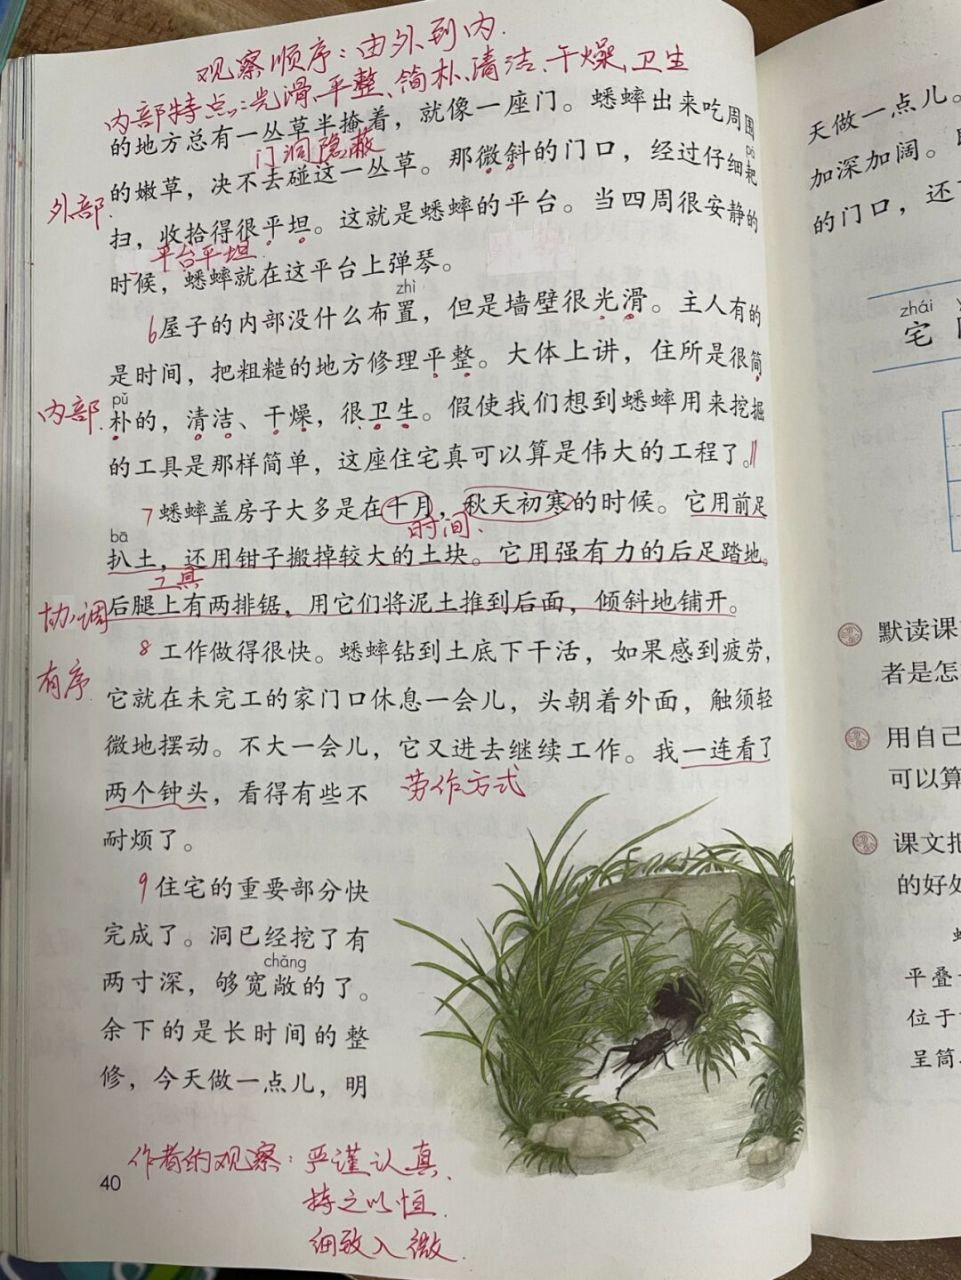 观察顺序：由外到内.
内部特点：光滑、平整、简朴、清洁、干燥、卫生
的地方总有一丛草半掩着，就像一座门。蟋蟀出来吃周围
门洞隐蔽
pá
的嫩草，决不去碰这一丛草。那微斜的门口，经过仔细耙
外部.
扫，收拾得很平坦。这就是蟋蟀的平台。当四周很安静的
平台平坦
时候，蟋蟀就在这平台上弹琴。
zhì
6屋子的内部没什么布置，但是墙壁很光滑。主人有的
是时间，把粗糙的地方修理平整。大体上讲，住所是很简
pǔ
内部.
朴的，清洁、干燥，很卫生。假使我们想到蟋蟀用来挖掘
的工具是那样简单，这座住宅真可以算是伟大的工程了。
7 蟋蟀盖房子大多是在十月，秋天初寒的时候。它用前足
时间、
bā
扒土，还用钳子搬掉较大的土块。它用强有力的后足踏地。
工具
协调
后腿上有两排锯，用它们将泥土推到后面，倾斜地铺开。
8 工作做得很快。蟋蟀钻到土底下干活，如果感到疲劳，
有序.
它就在未完工的家门口休息一会儿，头朝着外面，触须轻
微地摆动。不大一会儿，它又进去继续工作。我一连看了
两个钟头，看得有些不
劳作方式
耐烦了。
9 住宅的重要部分快
完成了。洞已经挖了有
chǎng
两寸深，够宽敞的了。
余下的是长时间的整
修，今天做一点儿，明
作者的观察：严谨认真、
持之以恒
细致入微.
40
天做一点儿。
加深加阔。
的门口，还
zhái
宅
默读课
者是怎
用自己
可以算
课文把
的好处
平叠
位于
呈筒